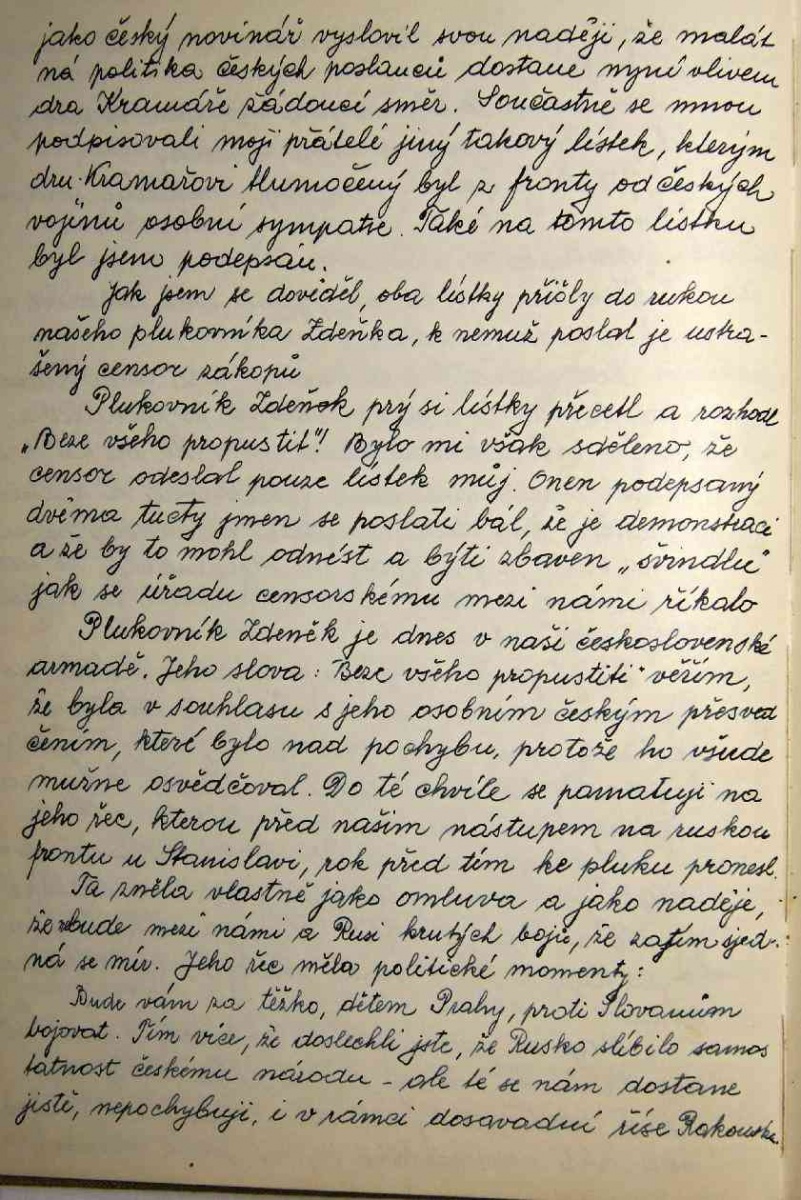 jako český novinář vyslovil svou naději, že malát
ná politika českých poslanců dostane nyní vlivem
dra Kramáře žádoucí směr. Součastně se mnou
podpisovali moji přátelé jiný takový lístek, kterým
dru. Kramařovi tlumočený byl z fronty od českých
vojínů osobní sympatie. Také na tomto lístku
byl jsem podepsán.
Jak jsem se dověděl, oba lístky přišly do rukou
našeho plukovníka Zdeňka, k nemuž poslal je ustra-
šený censor zákopů
Plukovník Zdeněk prý si lístky přecetl a rozhodl
„Beze všeho propustit"! Bylo mi však sděleno, že
censor odeslal pouze lístek můj. Onen podepsaný
dvěma tucty jmen se poslati bál, že je demonstrací
a že by to mohl odnést a býti zbaven „švindlu"
jak se úřadu censorskému mezi námi říkalo
Plukovník Zdeněk je dnes v naši československé
armadě. Jeho slova: Beze všeho propustiti" věřím,
že byla v souhlasu s jeho osobním českým přesved
čením, které bylo nad pochybu, protože ho všude
mužne osvědčoval. Do té chvíle se pamatuji na
jeho řec, kterou před našim nástupem na ruskou
frontu u Stanislavi, rok před tím ke pluku pronesl.
Ta zněla vlastně jako omluva a jako naděje,
že nebude mezi námi a Rusi krutých bojů, že zatím sjed-
ná se mír. Jeho řec měla politické momenty:
Bude vám za těžko, dětem Prahy, proti Slovanům
bojovat. Tím více, že doslechli jste, že Rusko slíbilo samos
tatnost českému národu - ale té se nám dostane
jistě, nepochybuji, i v rámci dosavadní říse Rakouska.